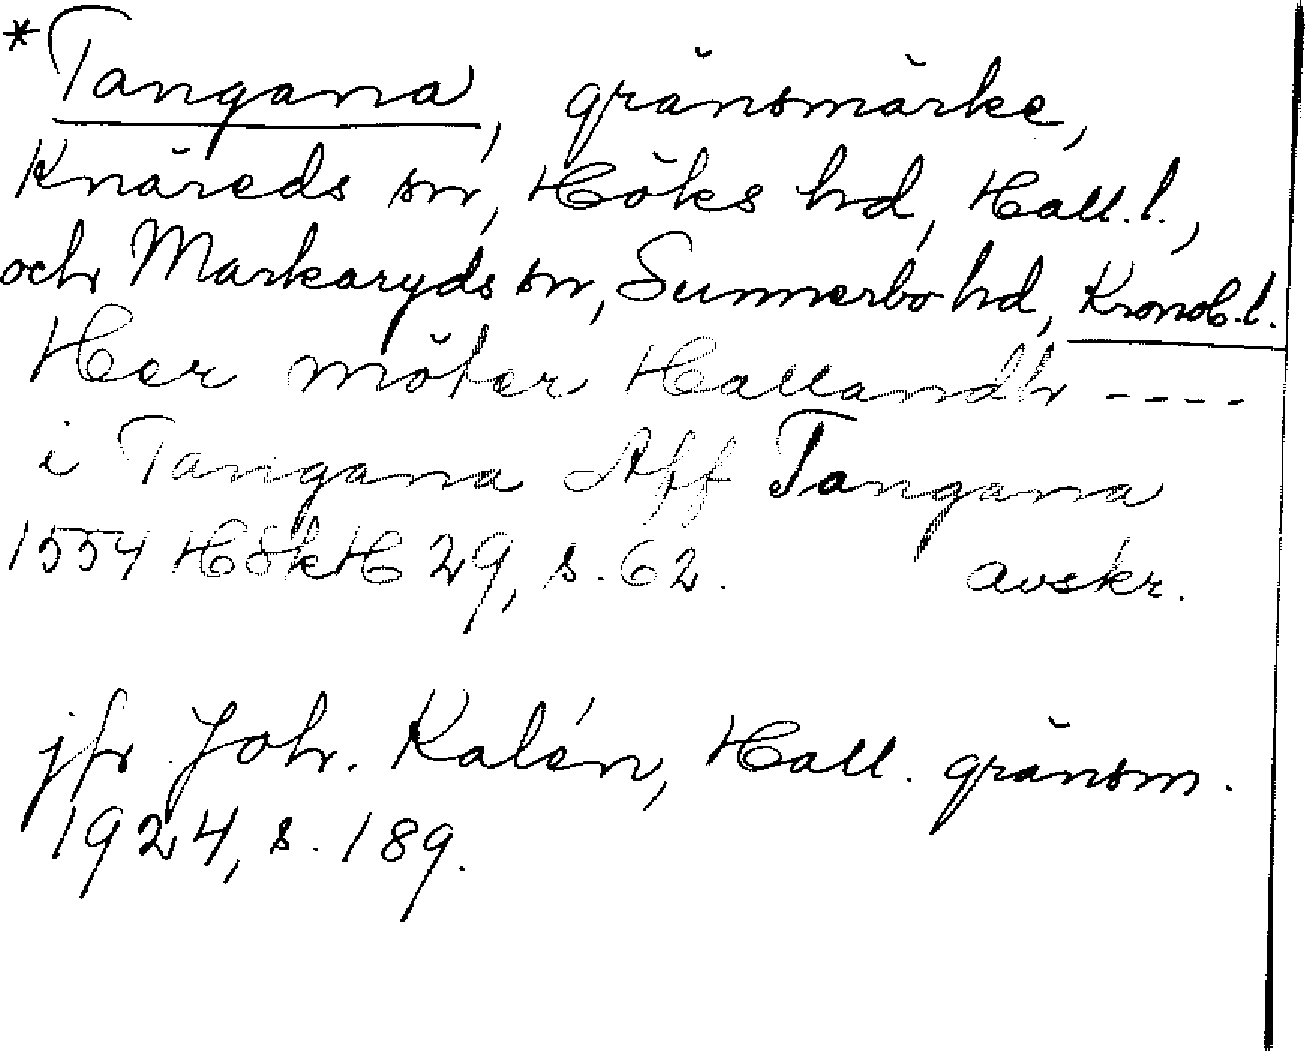 *Tangana, gränsmärke,
Knäreds sn, Höks hd, Hall.l.,
och Markaryds sn, Sunnerbo hd, Kronob.l.
Heer möter Hallandh ----
i Tangana Aff Tangana
1554 HSkH 29, s. 62. avskr.
jfr Joh. Kalén, Hall. gränsm.
1924, s. 189.